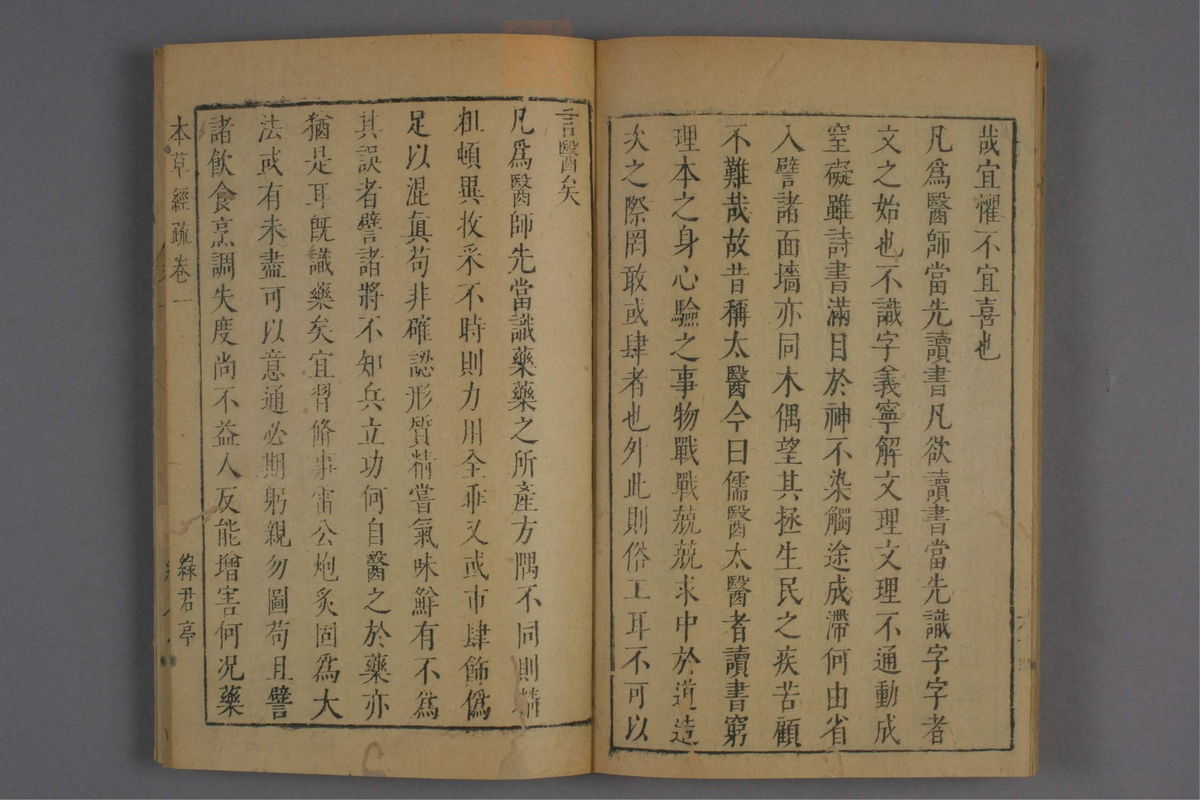 哉宜懼不宜喜也
凡爲醫師當先讀書凡欲讀書當先識字字者
文之始也不識字義寧解文理文理不通動成
窒礙雖詩書滿目於神不染觸途成滯何由省
入譬諸面墻亦同木偶望其拯生民之疾苦顧
不難哉故昔稱太醫今曰儒醫太醫者讀書窮
理本之身心驗之事物戰戰兢兢求中於道造
次之際罔敢或肆者也外此則俗工耳不可以
言醫矣
凡爲醫師先當識藥藥之所產方隅不同則精
粗頓異收采不時則力用全乖又或市肆飾僞
足以混眞苟非確認形質精嘗氣味鮮有不爲
其誤者譬諸將不知兵立功何自醫之於藥亦
猶是耳旣識藥矣宜習修事雷公炮炙固爲大
法或有未盡可以意通必期躬親勿圖苟且譬
諸飲食烹調失度尚不益人反能增害何況藥
本草經疏卷一
綠君亭